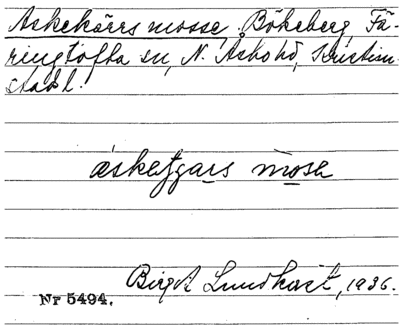 Askekärrs mosse. Bökeberg, Fä-
ringtofta sn, N. Åsbo hd, Kristian-
stads l.
mosse
Birgit Lundkvist, 1936.
Nr 5494.